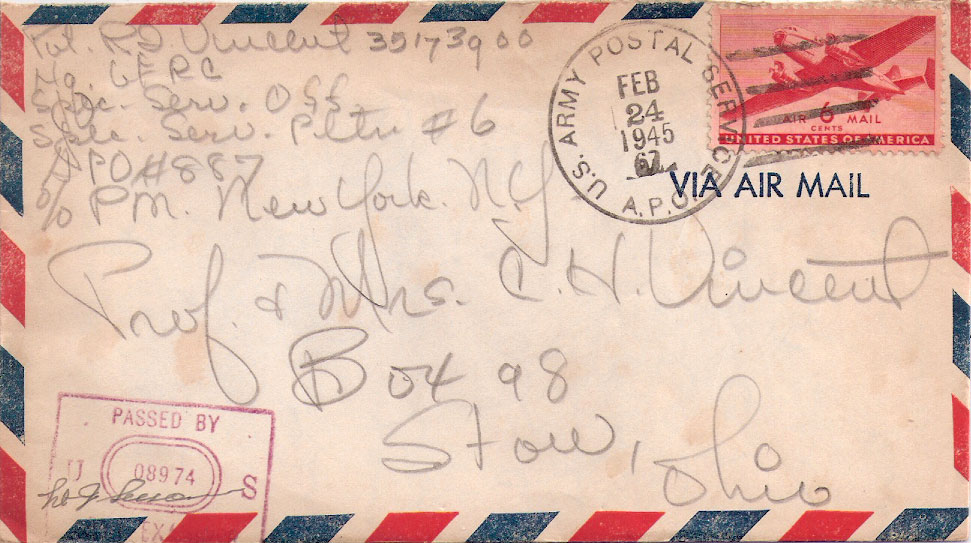 Pvt. R.D. Vincent 35173900
Hq. GFRC
Spec. Serv. OSS
Spec. Serv. Pltn #6
APO #887
c/o P.M. New York. N.Y.
U.S. ARMY POSTAL SERVICE
FEB
24
1945
A.P.O.
AIR 6 MAIL
CENTS
UNITED STATES OF AMERICA
VIA AIR MAIL
Prof. & Mrs. C. H. Vincent
Box 98
Stow, Ohio
PASSED BY
08974
S